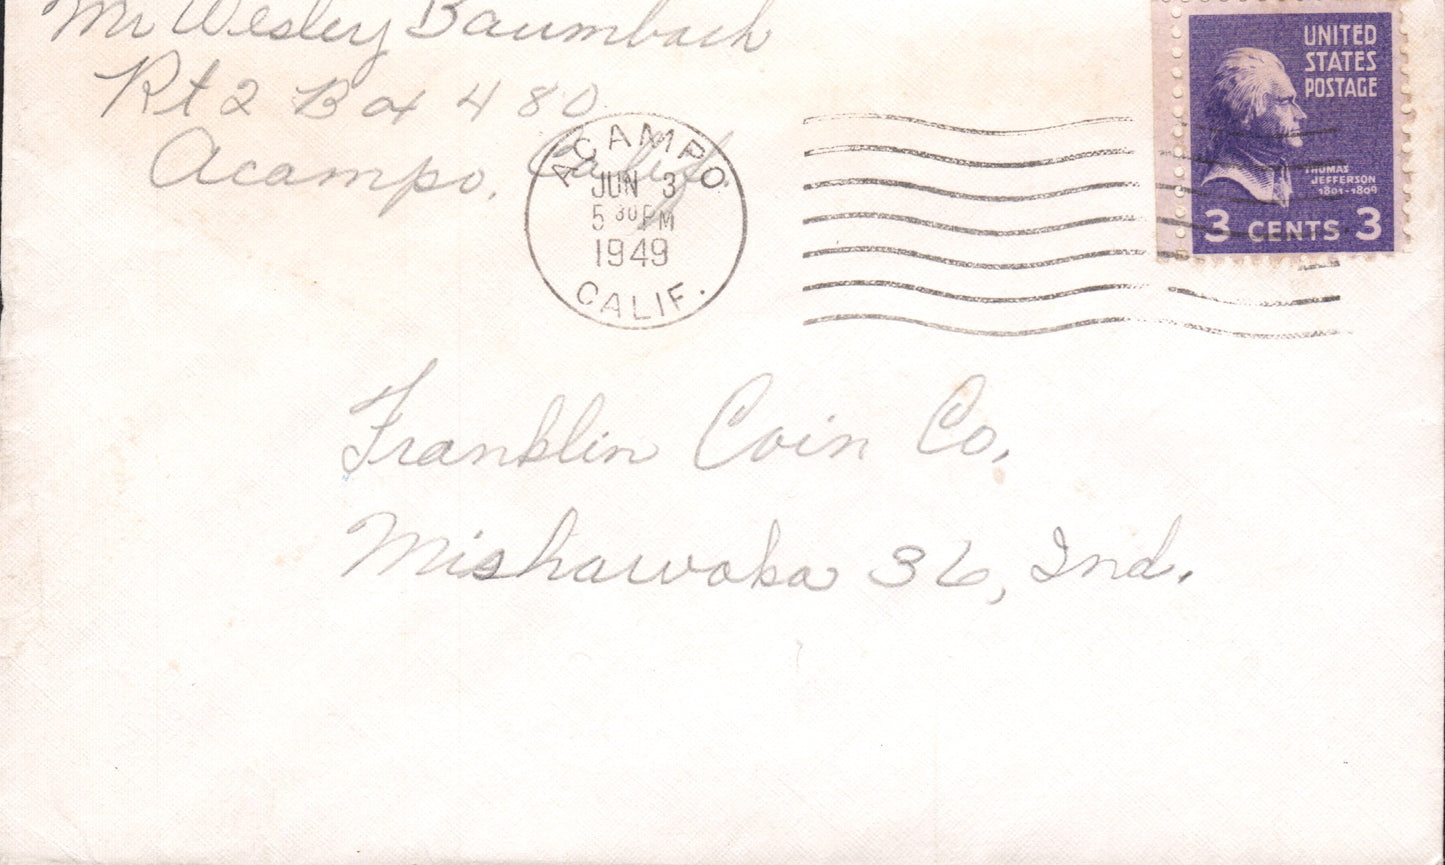 Mr Wesley Baumbach
Rt 2 Box 480
Acampo, Calif.
ACAMPO
JUN 3
5 30 PM
1949
CALIF.
UNITED
STATES
POSTAGE
THOMAS
JEFFERSON
1801-1809
3 CENTS 3
Franklin Coin Co.
Mishawaka 36, Ind.